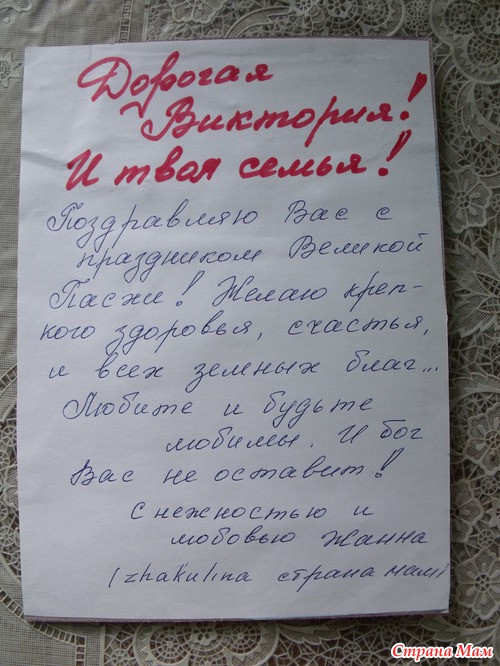 Дорогая
Виктория!
И твоя семья!
Поздравляю Вас с
праздником Великой
Пасхи! Желаю креп-
кого здоровья, счастья,
и всех земных благ...
Любите и будьте
любимы. И бог
Вас не оставит!
С нежностью и
любовью Жанна
(zhakulina страна мам)
Страна Мам